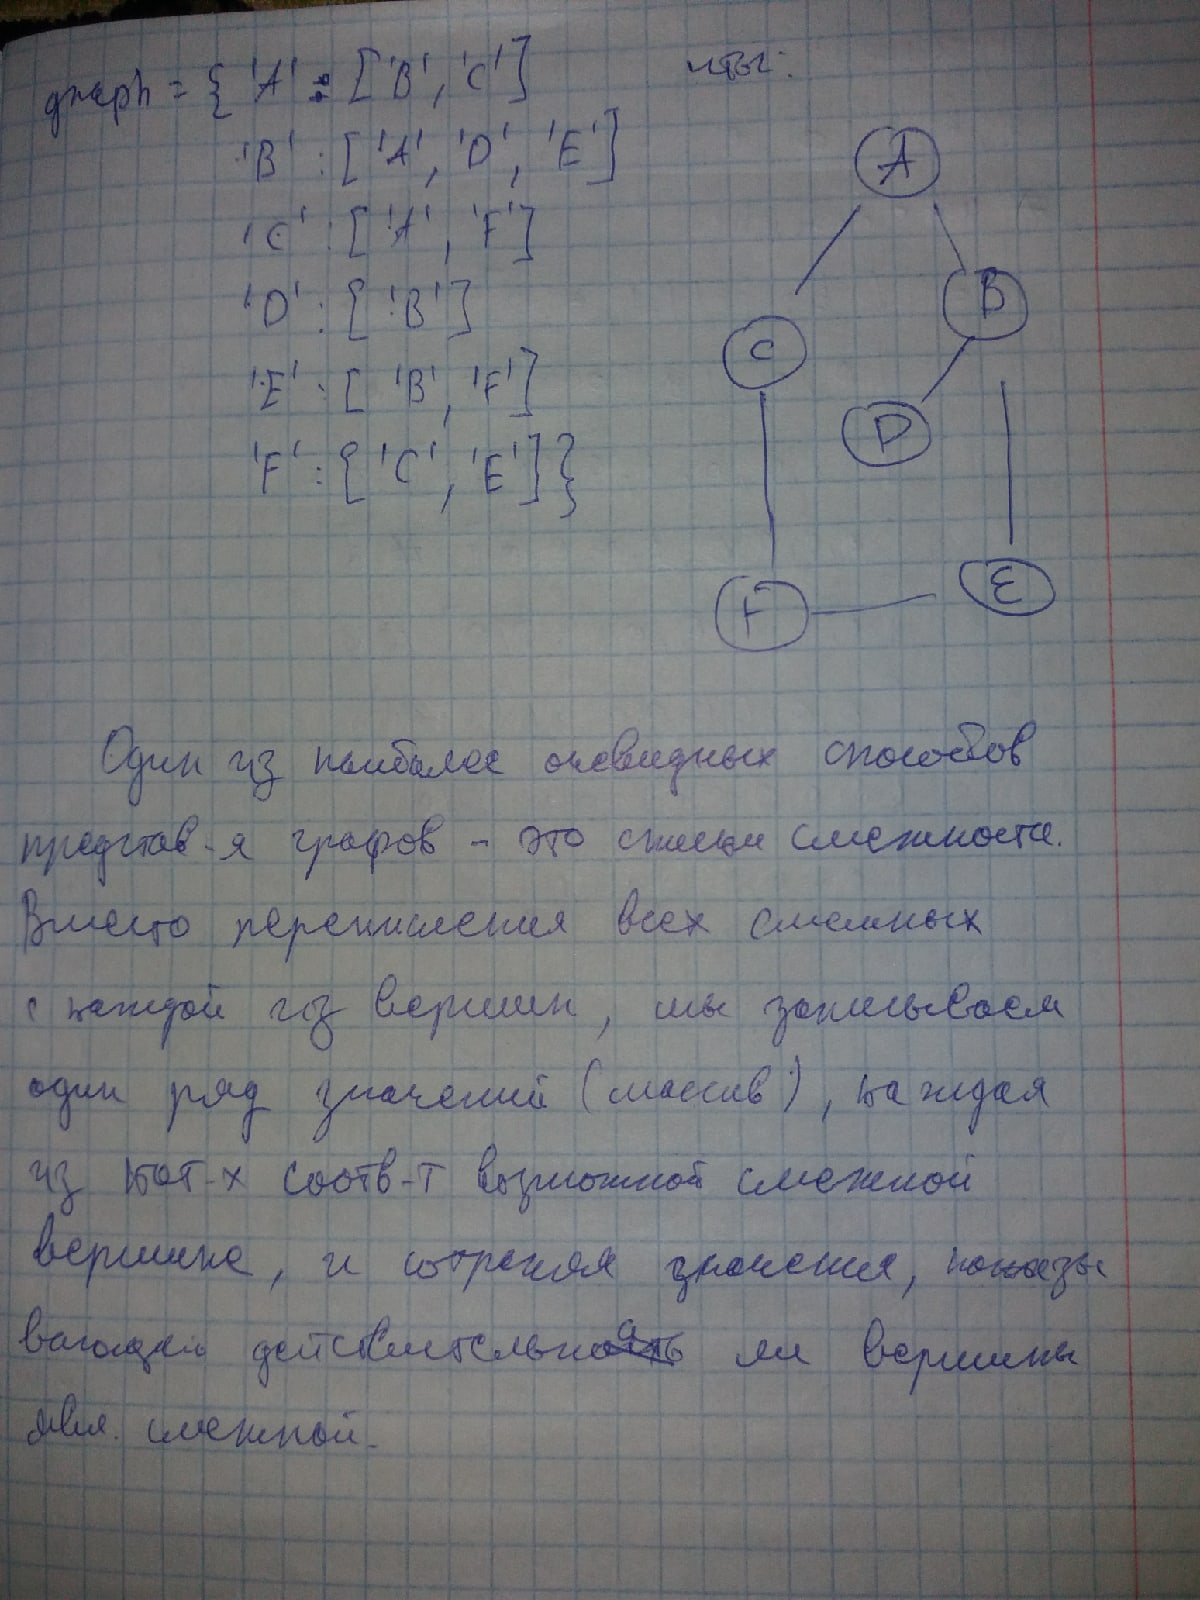 graph = { 'A' : ['B', 'C']
'B' : ['A', 'D', 'E']
'C' : ['A', 'F']
'D' : ['B']
'E' : ['B', 'F']
'F' : ['C', 'E']}
A
B
C
D
E
F
Один из наиболее очевидных способов
представ-я графов - это списки смежности.
Вместо перечисления всех смежных
с каждой из вершин, мы записываем
один ряд значений (массив), каждая
из кот-х соотв-т возможной смежной
вершине, и сохраняя значения, показы
вающей действительно ли вершины
явл. смежной.